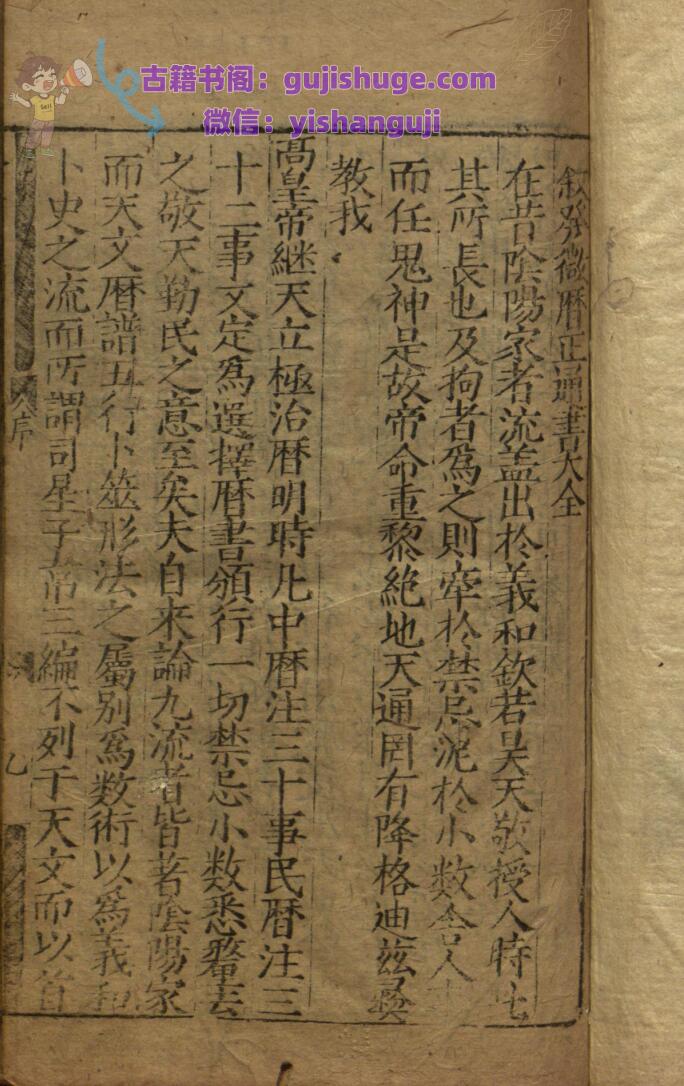 古籍书阁：gujishuge.com
微信：yishanguji
Sell
叙發微曆正通書大全
在昔陰陽家者流盖出於羲和欽若昊天敬授人時此
其所長也及拘者為之則牽於禁忌泥於小數舎人
而任鬼神是故帝命重黎絶地天通罔有降格迪兹彛
教我
高皇帝継天立極治曆明時凡中曆注三十事民曆注三
十二事文定為選擇曆書頒行一切禁忌小數悉釐去
之敬天勤民之意至矣夫自来論九流者皆若陰陽家
而天文曆譜五行卜筮形法之屬别為數術以為羲和
卜史之流而所謂司星子韋三編不列于天文而以首
序
乙